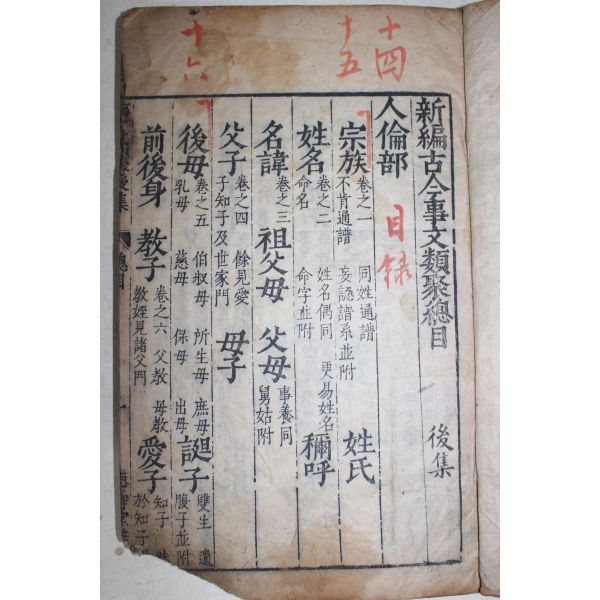 十四
十五
十六
新編古今事文類聚總目 後集
人倫部 目録
宗族 卷之一 不肯通譜 同姓通譜 妄認譜系並附 姓氏
姓名 卷之二 命名 姓名偶同 命字並附 更易姓名 稱呼
名諱 卷之三 祖父母 父母 事養同 舅姑附
父子 卷之四 子知子及世家門 餘見愛 母子
後母 卷之五 乳母 伯叔母 慈母 所生母 保母 庶母 出母 誕子 雙生 遺腹子並附
前後身 教子 卷之六 教姪見諸父門 父教 母教 愛子 知子 於知子
總目